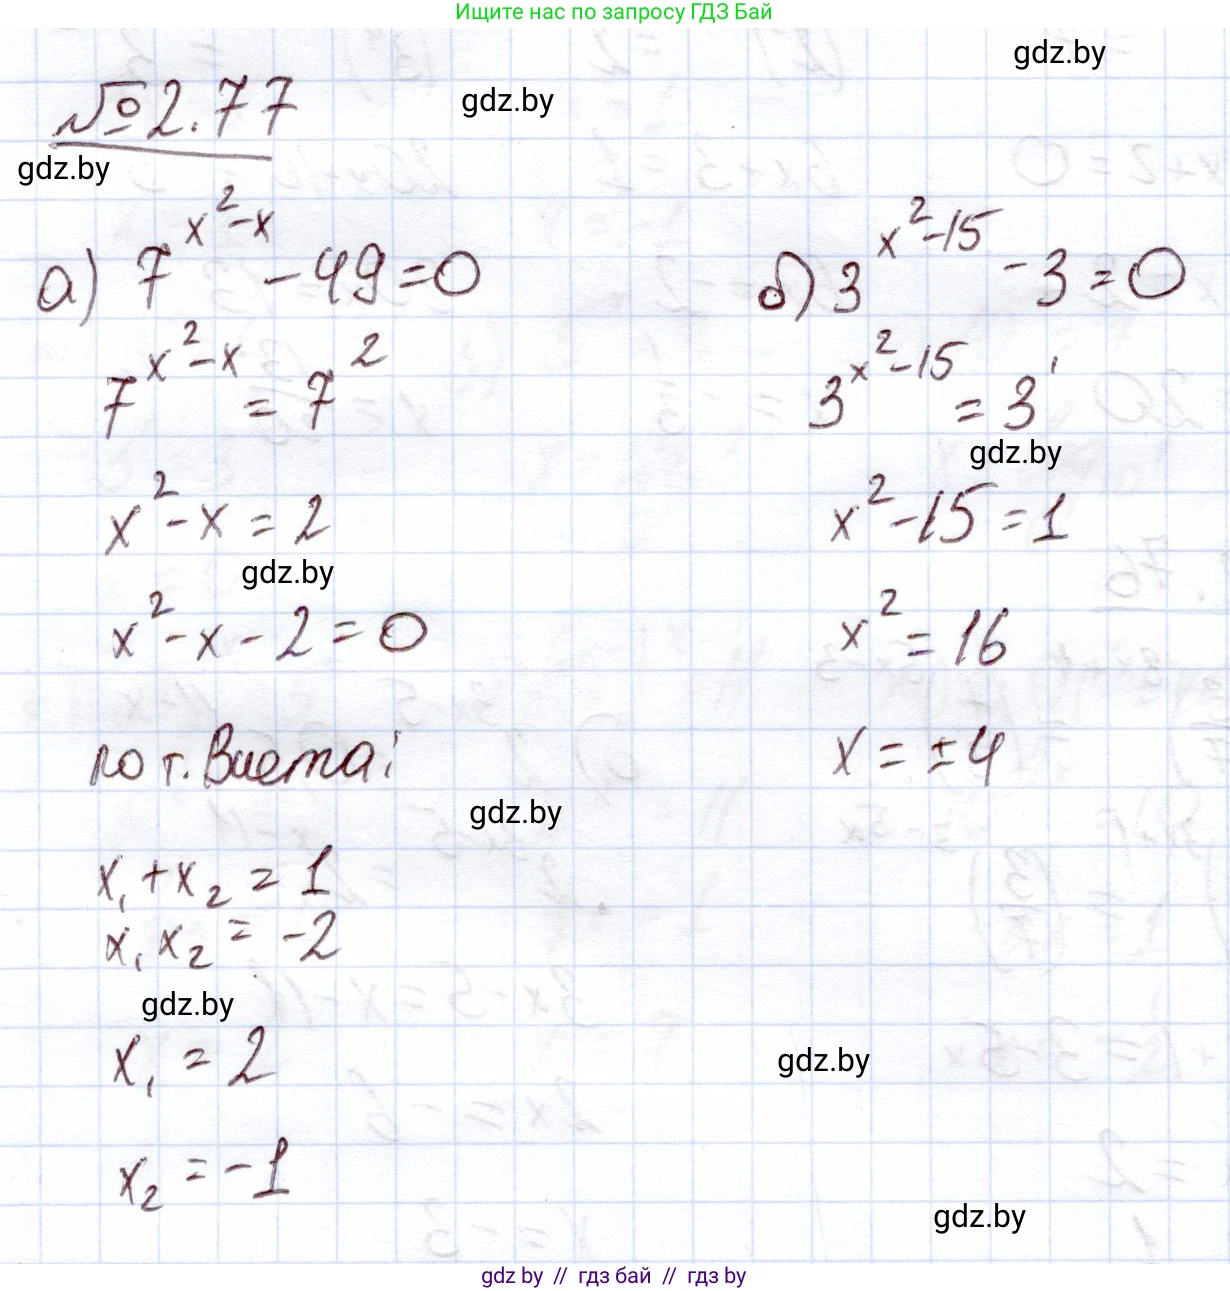 Ищите нас по запросу ГДЗ Бай
gdz.by
gdz.by
№2.77
gdz.by
а) 7^(x²-x) - 49 = 0
7^(x²-x) = 7²
x² - x = 2
gdz.by
x² - x - 2 = 0
по т. Виета:
gdz.by
x₁ + x₂ = 1
x₁ x₂ = -2
gdz.by
x₁ = 2
x₂ = -1
б) 3^(x²-15) - 3 = 0
3^(x²-15) = 3¹
gdz.by
x² - 15 = 1
x² = 16
x = ±4
gdz.by
gdz.by
gdz by // гдз бай // гдз by